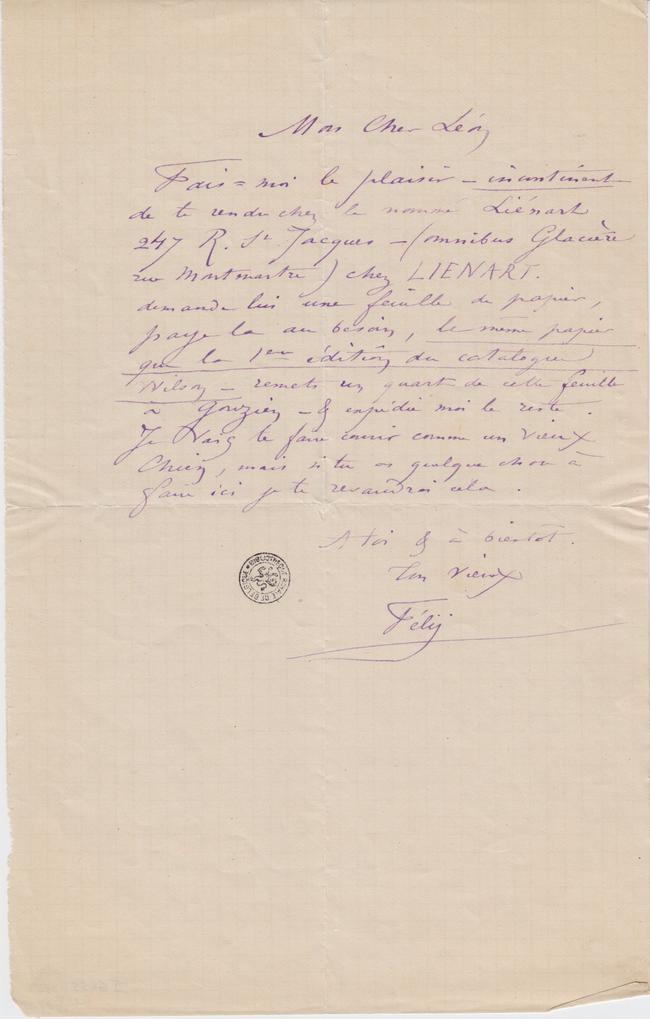 Mon Cher Léon
Fais=moi le plaisir – incontinent
de te rendre chez le nommé Liénart
247 R. St Jacques – (omnibus Glacière
rue Montmartre) chez LIENART.
demande lui une feuille de papier,
paye la au besoin, le même papier
que la 1ere édition du catalogue
Wilson – remets un quart de cette feuille
à Gouzien – & expédie moi le reste.
Je vais te faire courir comme un vieux
Chien, mais si tu as quelque chose à
faire ici je te revaudrai cela.
A toi & à bientot.
Ton vieux
Fély
BIBLIOTHEQUE ROYALE DE BELGIQUE